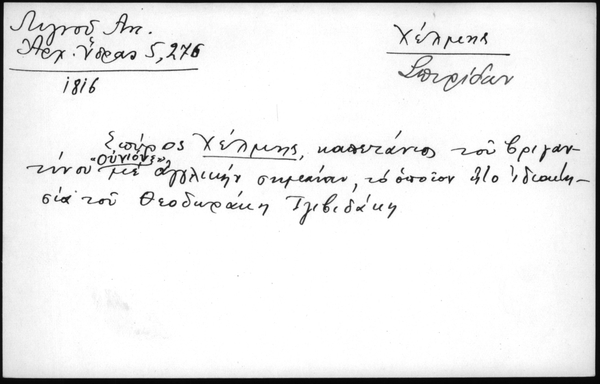 Λιγνοῦ Αν.
Ἀρχ. Ὕδρας 5, 276
1816
Χέλμης
Σπυρίδων
Σπύρος Χέλμης, καπετάνιος τοῦ βριγαν-
τίνου "Οὐνιόνε", μέ ἀγγλικήν σημαίαν, τό ὁποῖον ἦτο ἰδιοκτη-
σία τοῦ Θεοδωράκη Γκιβιδάκη